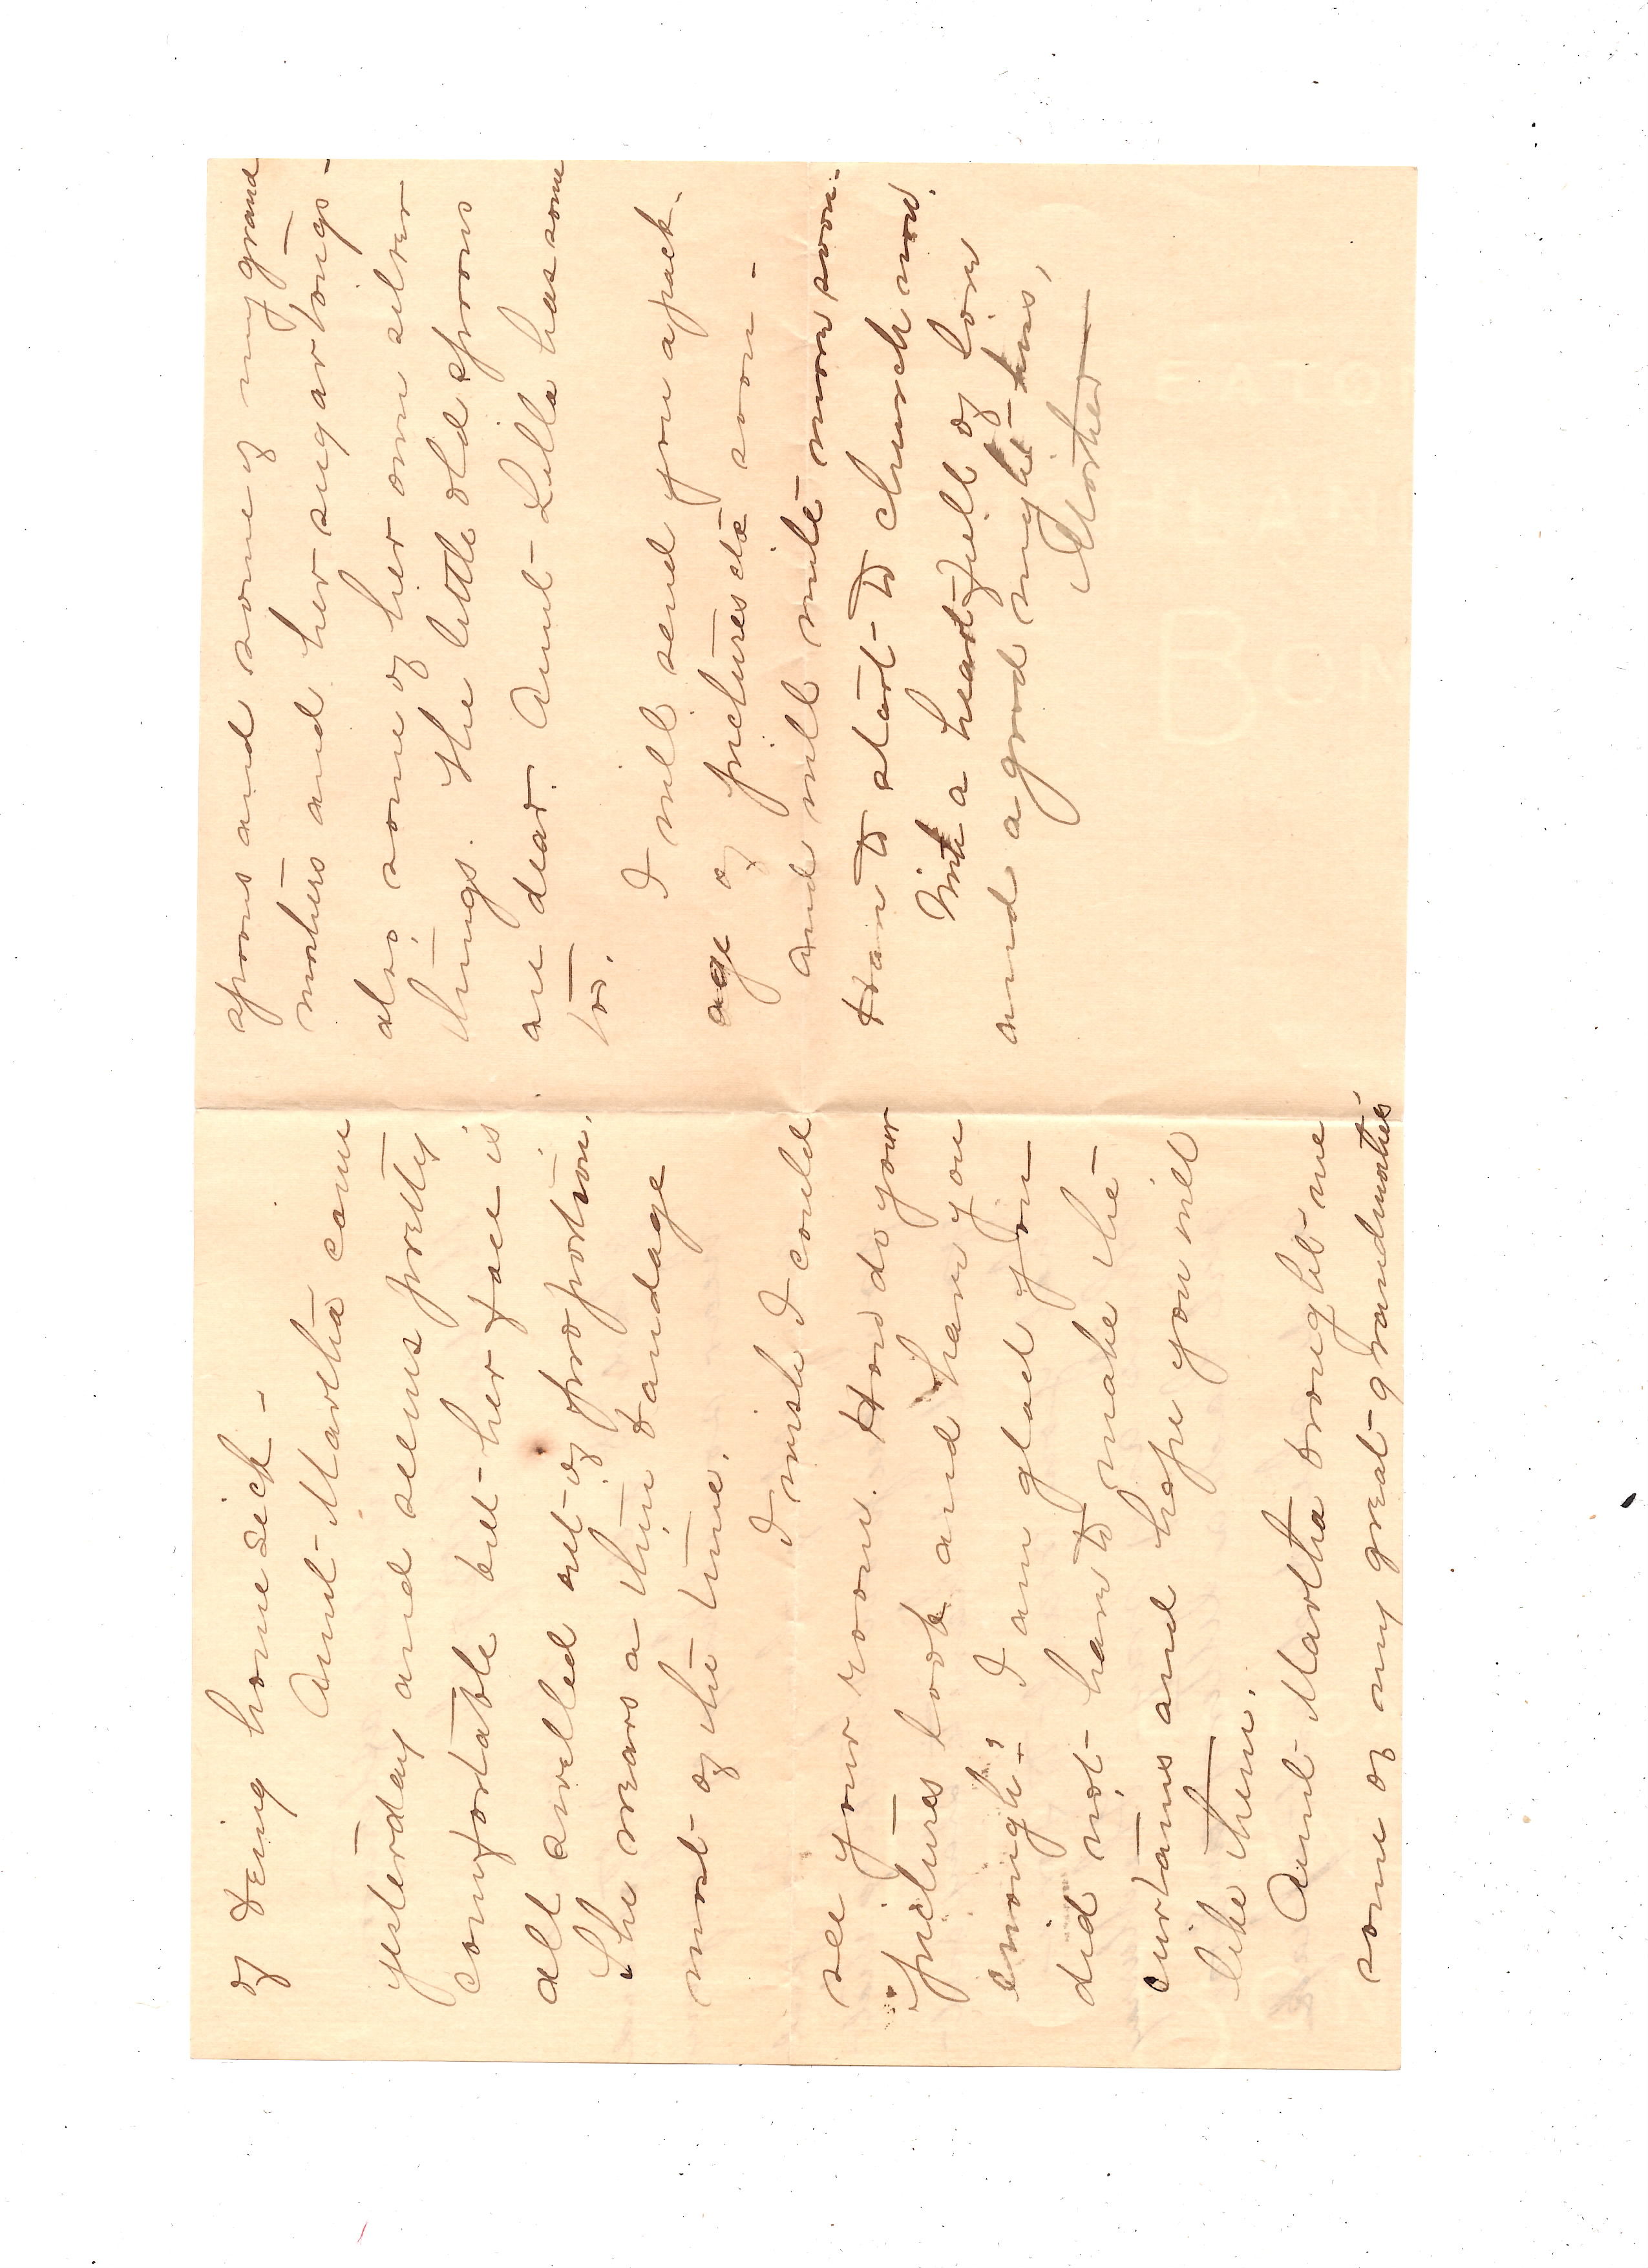 of being homesick -
Aunt Martha came
yesterday and seems pretty
comfortable but her face is
all swelled out of proportion.
She wears a thin bandage
most of the time.
I wish I could
see your room. How do your
pictures look and have you
enough? I am glad you
did not have to make the
curtains and hope you will
like them.
Aunt Martha brought me
some of my great-grandmother's
spoons and some of my grand
mothers and her sugar tongs -
also, some of her own silver
things. The little old spoons
are dear. Aunt Lilla has some
too.
I will send you a pack-
age of pictures etc soon -
And will write more soon -
Have to start to church now.
With a heart full of love
and a good night kiss,
Mother
EATO
B ON